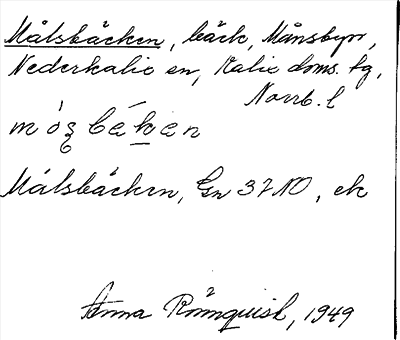 Målsbäcken, bäck, Månsbyn,
Nederkalix sn, Kalix doms. tg,
Norrb. l
Målsbäcken, Gn 37 NO, ek
Anna Rönnquist, 1949